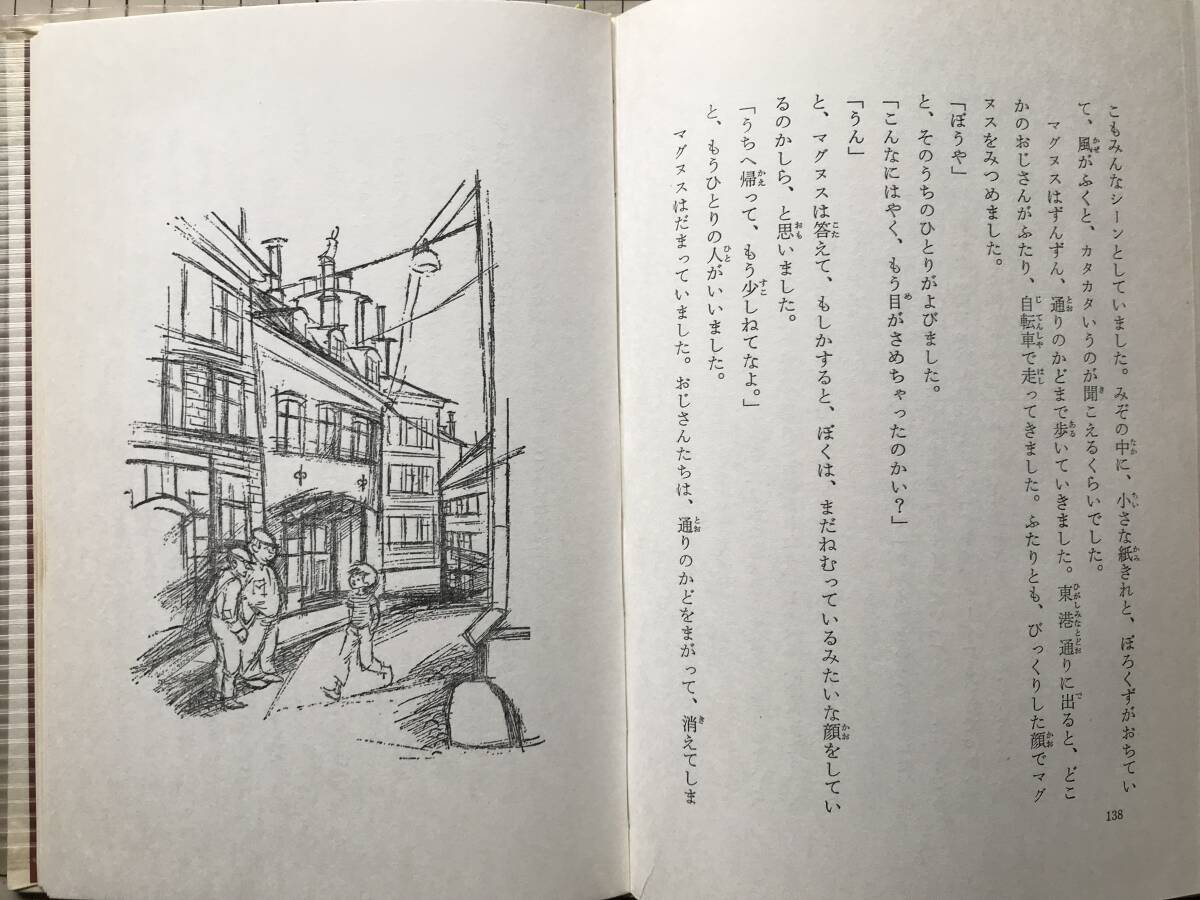 こもみんなシーンとしていました。みぞの中に、小さな紙きれと、ぼろくずがおちてい
て、風がふくと、カタカタいうのが聞こえるくらいでした。
マグヌスはずんずん、通りのかどまで歩いていきました。東港通りに出ると、どこ
かのおじさんがふたり、自転車で走ってきました。ふたりとも、びっくりした顔でマグ
ヌスをみつめました。
「ぼうや」
と、そのうちのひとりがよびました。
「こんなにはやく、もう目がさめちゃったのかい？」
「うん」
と、マグヌスは答えて、もしかすると、ぼくは、まだねむっているみたいな顔をしてい
るのかしら、と思いました。
「うちへ帰って、もう少しねてなよ。」
と、もうひとりの人がいいました。
マグヌスはだまっていました。おじさんたちは、通りのかどをまがって、消えてしま
138